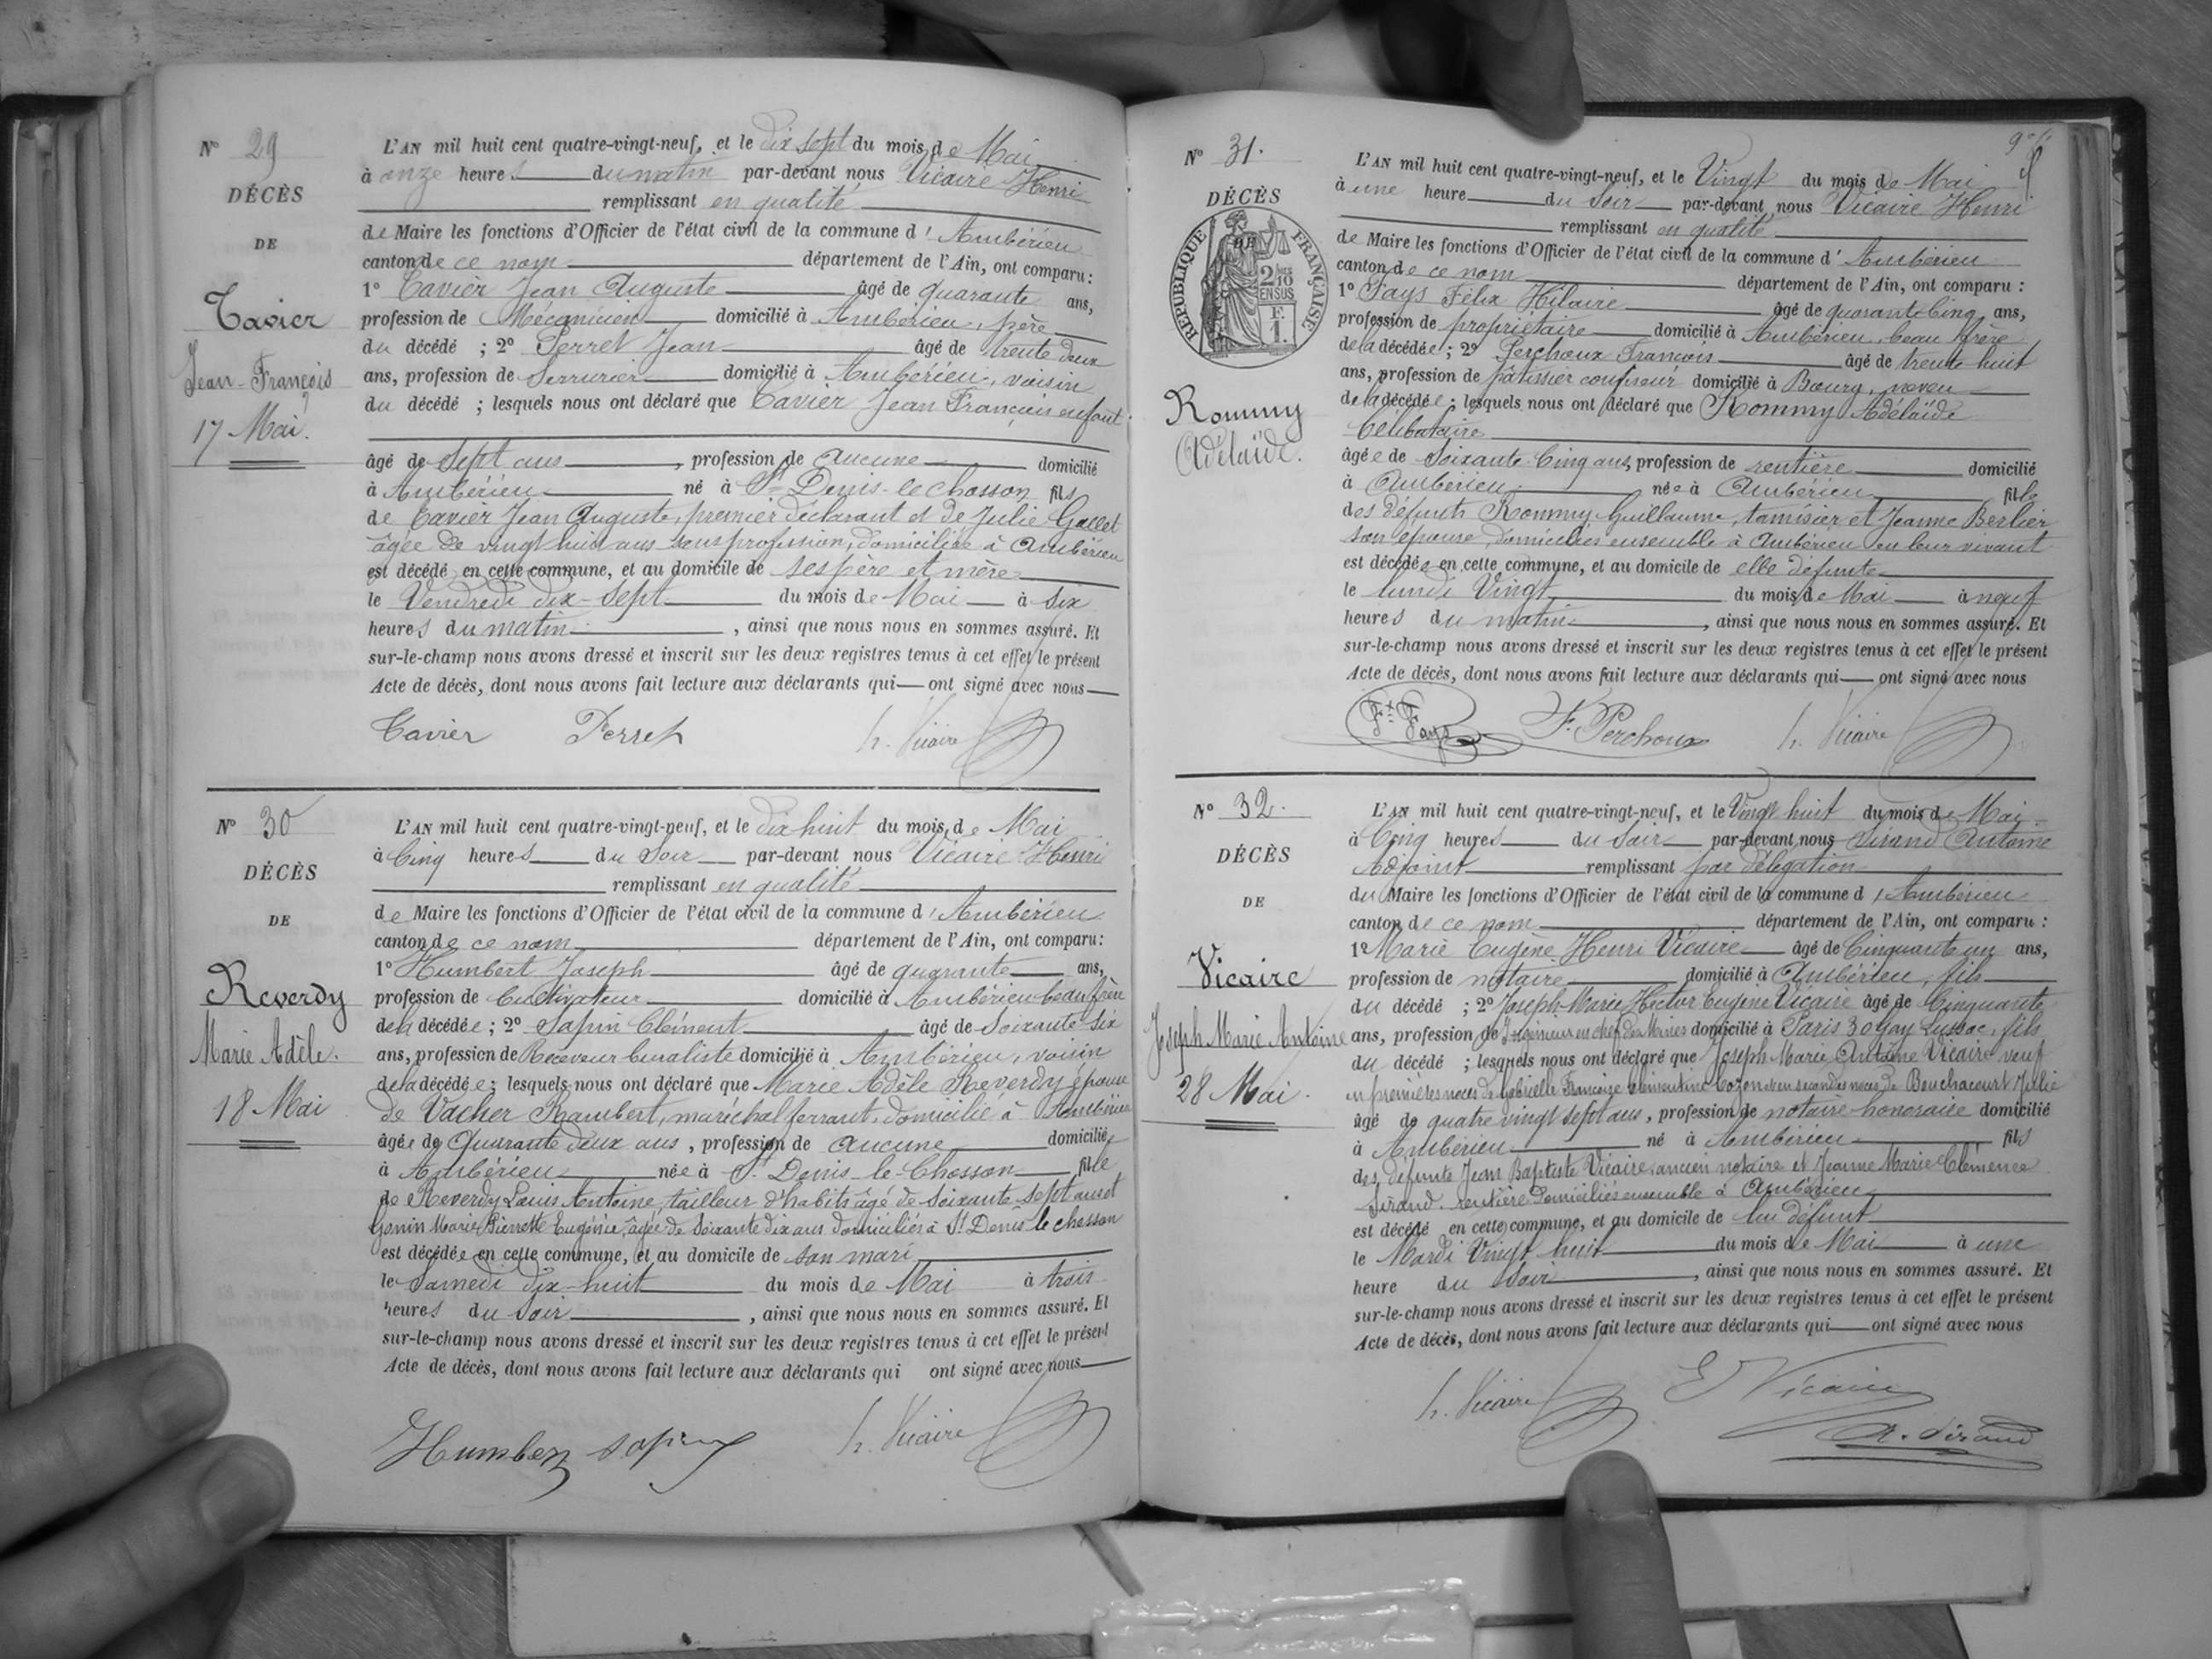 N° 29
DÉCÈS
DE
Tavier
Jean-François
17 Mai.
L'AN mil huit cent quatre-vingt-neuf, et le dix sept du mois de Mai
à onze heures du matin par-devant nous Vicaire Henri
remplissant en qualité
de Maire les fonctions d'Officier de l'état civil de la commune d'Ambérieu
canton de ce nom département de l'Ain, ont comparu :
1° Tavier Jean Auguste âgé de quarante ans,
profession de Mécanicien domicilié à Ambérieu, père
du décédé ; 2° Perret Jean âgé de trente deux
ans, profession de Serrurier domicilié à Ambérieu, voisin
du décédé ; lesquels nous ont déclaré que Tavier Jean François enfant
âgé de Sept ans, profession de aucune domicilié
à Ambérieu né à St Denis-le chosson fils
de Tavier Jean Auguste, premier déclarant et de Julie Gallet
âgée de vingt huit ans sans profession, domiciliée à Ambérieu
est décédé en cette commune, et au domicile de ses père et mère
le Vendredi dix-sept du mois de Mai à six
heures du matin, ainsi que nous nous en sommes assuré. Et
sur-le-champ nous avons dressé et inscrit sur les deux registres tenus à cet effet le présent
Acte de décès, dont nous avons fait lecture aux déclarants qui ont signé avec nous
Tavier Perret h. Vicaire
N° 30
DÉCÈS
DE
Reverdy
Marie Adèle.
18 Mai
L'AN mil huit cent quatre-vingt-neuf, et le dix huit du mois de Mai
à Cinq heures du Soir par-devant nous Vicaire Henri
remplissant en qualité
de Maire les fonctions d'Officier de l'état civil de la commune d'Ambérieu
canton de ce nom département de l'Ain, ont comparu :
1° Humbert Joseph âgé de quarante ans,
profession de Cultivateur domicilié à Ambérieu beau frère
de la décédée ; 2° Sapin Clément âgé de Soixante-six
ans, profession de Receveur buraliste domicilié à Ambérieu, voisin
de la décédée ; lesquels nous ont déclaré que Marie Adèle Reverdy épouse
de Vacher Rambert, maréchal ferrant, domicilié à Ambérieu
âgée de Quarante deux ans, profession de aucune domiciliée
à Ambérieu née à St Denis-le-Chosson fille
de Reverdy Louis Antoine, tailleur d'habits âgé de Soixante-sept ans et
Gonin Marie Pierrette Eugénie, âgée de Soixante dix ans domiciliés à St Denis le chosson
est décédée en cette commune, et au domicile de son mari
le Samedi dix-huit du mois de Mai à trois
heures du Soir, ainsi que nous nous en sommes assuré. Et
sur-le-champ nous avons dressé et inscrit sur les deux registres tenus à cet effet le présent
Acte de décès, dont nous avons fait lecture aux déclarants qui ont signé avec nous
Humbert Sapin h. Vicaire
N° 31.
DÉCÈS
DE
RÉPUBLIQUE FRANÇAISE
2/10
EN SUS
F.
1.
Rommy
Adélaïde.
L'AN mil huit cent quatre-vingt-neuf, et le Vingt du mois de Mai
à une heure du Soir par-devant nous Vicaire Henri
remplissant en qualité
de Maire les fonctions d'Officier de l'état civil de la commune d'Ambérieu
canton de ce nom département de l'Ain, ont comparu :
1° Fays Félix Hilaire âgé de quarante Cinq ans,
profession de propriétaire domicilié à Ambérieu, beau frère
de la décédée ; 2° Perchoux François âgé de trente-huit
ans, profession de pâtissier confiseur domicilié à Bourg, neveu
de la décédée ; lesquels nous ont déclaré que Rommy Adélaïde
Célibataire
âgée de Soixante-Cinq ans, profession de rentière domicilié
à Ambérieu née à Ambérieu fille
des défunts Rommy Guillaume, tamisier et Jeanne Berlier
son épouse, domiciliés ensemble à Ambérieu en leur vivant
est décédée en cette commune, et au domicile de elle défunte
le lundi Vingt du mois de Mai à neuf
heures du matin, ainsi que nous nous en sommes assuré. Et
sur-le-champ nous avons dressé et inscrit sur les deux registres tenus à cet effet le présent
Acte de décès, dont nous avons fait lecture aux déclarants qui ont signé avec nous
Fx Fays F. Perchoux h. Vicaire
N° 32.
DÉCÈS
DE
Vicaire
Joseph Marie Antoine
28 Mai.
L'AN mil huit cent quatre-vingt-neuf, et le Vingt huit du mois de Mai
à Cinq heures du Soir par-devant nous Sirand Antoine
Adjoint remplissant par délégation
du Maire les fonctions d'Officier de l'état civil de la commune d'Ambérieu
canton de ce nom département de l'Ain, ont comparu :
1° Marie Eugène Henri Vicaire âgé de Cinquante un ans,
profession de notaire domicilié à Ambérieu, fils
du décédé ; 2° Joseph Marie Hector Eugène Vicaire âgé de Cinquante
ans, profession de Ingénieur en chef des Mines domicilié à Paris 30 Gay Lussac, fils
du décédé ; lesquels nous ont déclaré que Joseph Marie Antoine Vicaire veuf
en premières noces de Gabrielle Françoise Clémentine Cozon et en secondes noces de Bouchacourt Julie
âgé de quatre vingt sept ans, profession de notaire honoraire domicilié
à Ambérieu né à Ambérieu fils
des défunts Jean Baptiste Vicaire, ancien notaire et Jeanne Marie Clémence
Sirand, rentière domiciliés ensemble à Ambérieu
est décédé en cette commune, et au domicile de lui défunt
le Mardi Vingt huit du mois de Mai à une
heure du Soir, ainsi que nous nous en sommes assuré. Et
sur-le-champ nous avons dressé et inscrit sur les deux registres tenus à cet effet le présent
Acte de décès, dont nous avons fait lecture aux déclarants qui ont signé avec nous
h. Vicaire E Vicaire
A. Sirand